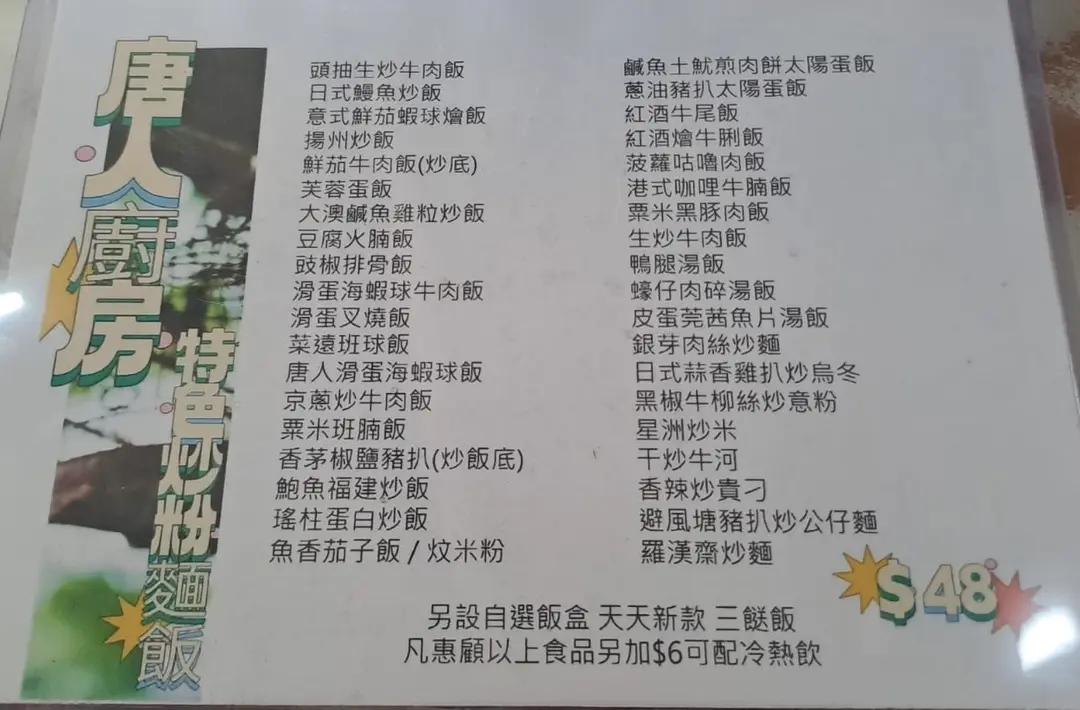 唐人廚房
特色炒粉麵飯
頭抽生炒牛肉飯
日式鰻魚炒飯
意式鮮茄蝦球燴飯
揚州炒飯
鮮茄牛肉飯(炒底)
芙蓉蛋飯
大澳鹹魚雞粒炒飯
豆腐火腩飯
豉椒排骨飯
滑蛋海蝦球牛肉飯
滑蛋叉燒飯
菜遠班球飯
唐人滑蛋海蝦球飯
京蔥炒牛肉飯
粟米班腩飯
香茅椒鹽豬扒(炒飯底)
鮑魚福建炒飯
瑤柱蛋白炒飯
魚香茄子飯 / 炆米粉
鹹魚土魷煎肉餅太陽蛋飯
蔥油豬扒太陽蛋飯
紅酒牛尾飯
紅酒燴牛脷飯
菠蘿咕嚕肉飯
港式咖哩牛腩飯
粟米黑豚肉飯
生炒牛肉飯
鴨腿湯飯
蠔仔肉碎湯飯
皮蛋莞茜魚片湯飯
銀芽肉絲炒麵
日式蒜香雞扒炒烏冬
黑椒牛柳絲炒意粉
星洲炒米
干炒牛河
香辣炒貴刁
避風塘豬扒炒公仔麵
羅漢齋炒麵
$48
另設自選飯盒 天天新款 三餸飯
凡惠顧以上食品另加$6可配冷熱飲